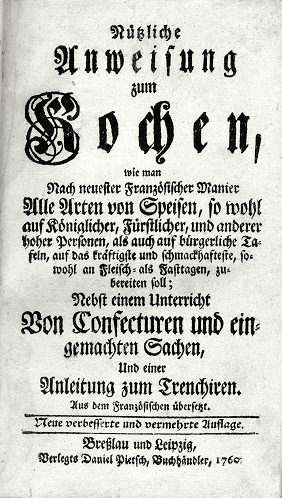 Nützliche
Anweisung
zum
Kochen,
wie man
Nach neuester Französischer Manier
Alle Arten von Speisen, so wohl
auf Königlicher, Fürstlicher, und anderer
hoher Personen, als auch auf bürgerliche Ta-
feln, auf das kräftigste und schmackhafteste, so-
wohl an Fleisch- als Fasttagen, zu-
bereiten soll;
Nebst einem Unterricht
Von Confecturen und ein-
gemachten Sachen,
Und einer
Anleitung zum Trenchiren.
Aus dem Französischen übersetzt.
Neue verbesserte und vermehrte Auflage.
Breßlau und Leipzig,
Verlegts Daniel Pietsch, Buchhändler, 1760.